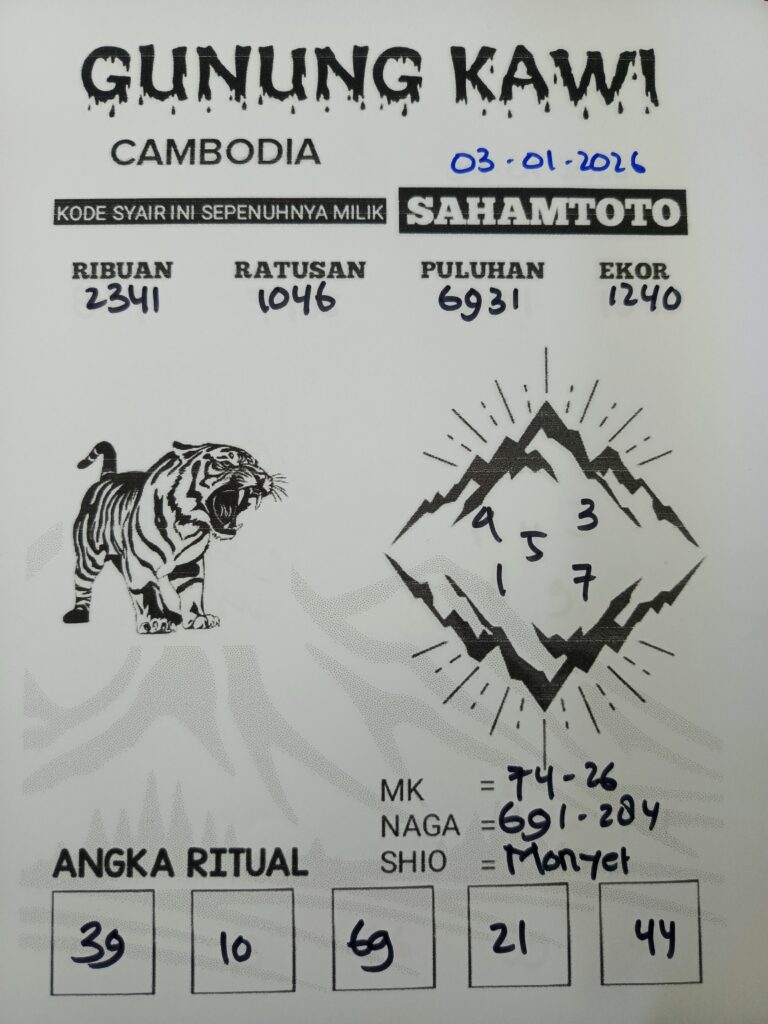 GUNUNG KAWI
CAMBODIA 03-01-2026
KODE SYAIR INI SEPENUHNYA MILIK SAHAMTOTO
RIBUAN RATUSAN PULUHAN EKOR
2341 1046 6931 1240
9 3
5
1 7
MK = 74-26
NAGA = 691-284
SHIO = Monyet
ANGKA RITUAL
39 10 69 21 44